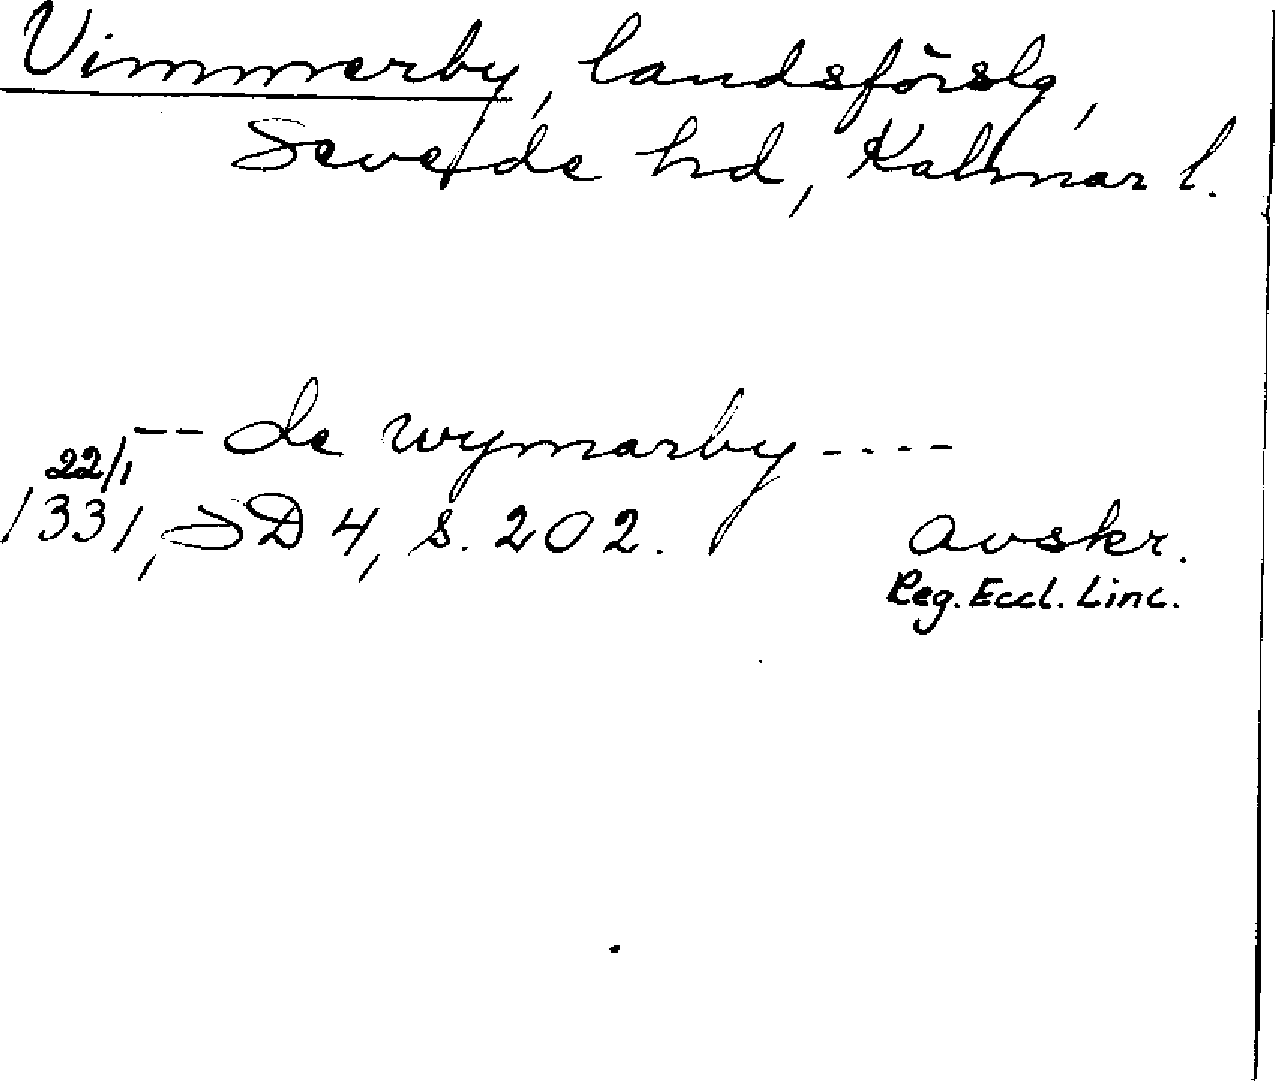 Vimmerby, landsförslg,
Sevede hd, Kalmar l.
-- de wymarby ----
22/1
1331, SD 4, s. 202. avskr.
Reg. Eccl. Linc.